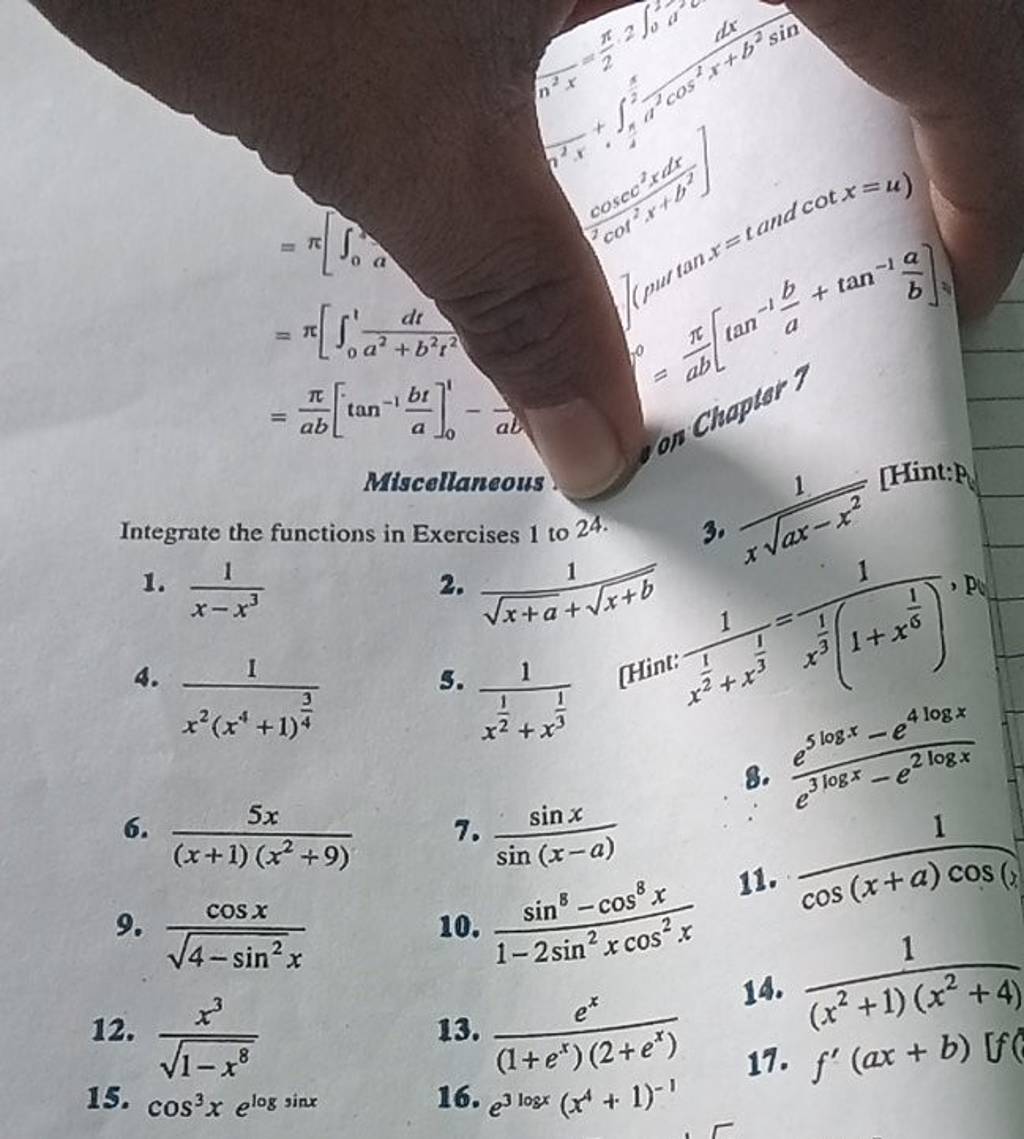 n² x = π/2 . 2 ∫₀
n² x + ∫_{π/4}^{π/2} dx / a² cos² x + b² sin
= π[ ∫₀ a cosec² x dx / ² cot² x + b² ]
= π[ ∫₀¹ dt / a² + b²t² ](put tan x = t and cot x = u)
= π/ab [tan⁻¹ bt/a]₀¹ − ab 0 = π/ab [tan⁻¹ b/a + tan⁻¹ a/b] =
Miscellaneous on Chapter 7
Integrate the functions in Exercises 1 to 24.
1. 1 / x − x³ 2. 1 / √x+a + √x+b 3. 1 / x√ax − x² [Hint:
4. 1 / x²(x⁴ + 1)^{3/4} 5. 1 / x^{1/2} + x^{1/3} [Hint: 1 / x^{1/2} + x^{1/3} = 1 / x^{1/3}(1 + x^{1/6}),
6. 5x / (x+1) (x² + 9) 7. sin x / sin (x − a) 8. e^{5 log x} − e^{4 log x} / e^{3 log x} − e^{2 log x}
9. cos x / √4 − sin² x 10. sin⁸ − cos⁸ x / 1 − 2 sin² x cos² x 11. 1 / cos (x + a) cos (
12. x³ / √1 − x⁸ 13. eˣ / (1 + eˣ) (2 + eˣ) 14. 1 / (x² + 1) (x² + 4)
15. cos³ x e^{log sinx} 16. e^{3 logx} (x⁴ + 1)⁻¹ 17. f′ (ax + b) [f(